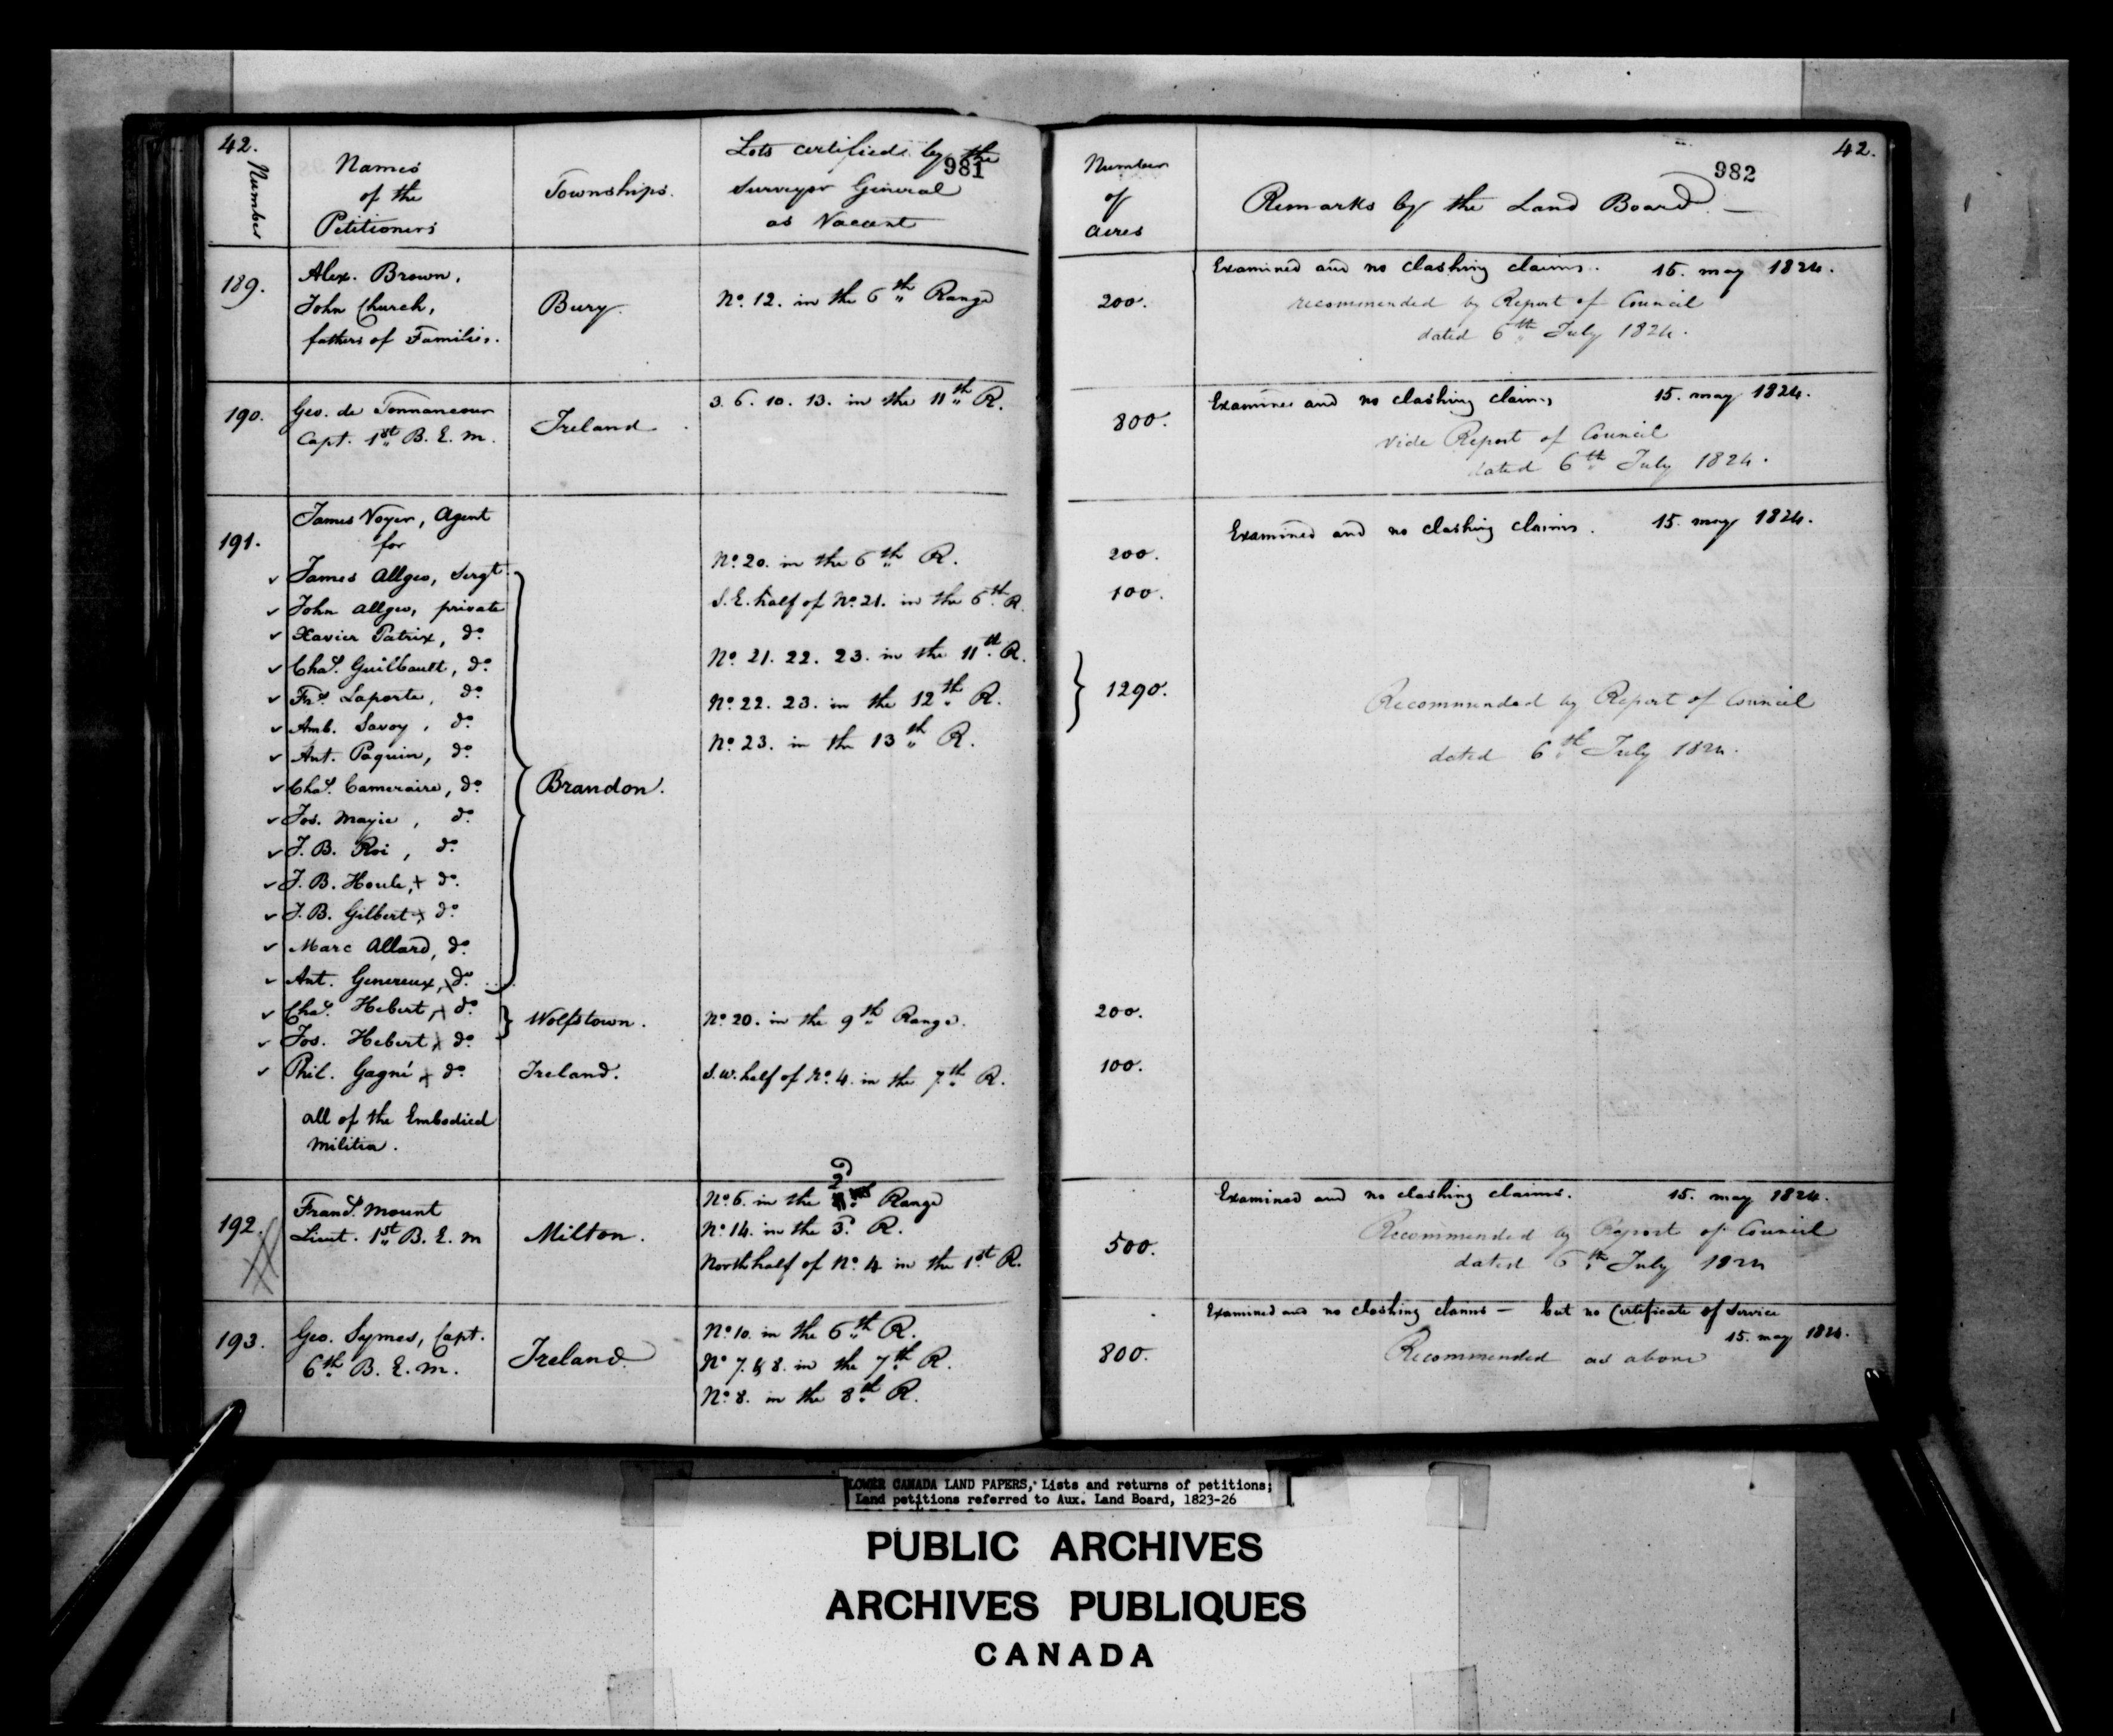 42.
981
Number
Names
of the
Petitioners
Townships.
Lots certified by the
Surveyor General
as Vacant
189.
Alex. Brown,
John Church,
fathers of Families.
Bury.
No. 12. in the 6th Range
190.
Geo. de Tonnancour
Capt. 1st B. E. M.
Ireland.
3. 6. 10. 13. in the 11th R.
191.
James Voyer, Agent
for
James Allgeo, Sergt.
John Allgeo, private
Xavier Patrix, do.
Chas. Guilbault, do.
Frs. Laporte, do.
Amb. Savoy, do.
Ant. Paquin, do.
Chas. Cameraire, do.
Jos. Majie, do.
J. B. Roi, do.
J. B. Houle, + do.
J. B. Gilbert + do.
Marc Allard, do.
Ant. Genereux, + do.
Brandon.
No. 20. in the 6th R.
S. E. half of No. 21. in the 6th R.
No. 21. 22. 23. in the 11th R.
No. 22. 23. in the 12th R.
No. 23. in the 13th R.
Chas. Hebert, + do.
Jos. Hebert, + do.
Wolfstown.
No. 20. in the 9th Range.
Phil. Gagné + do.
Ireland.
S. W. half of No. 4. in the 7th R.
all of the Embodied
Militia.
192.
Frans. Mount
Lieut. 1st B. E. M
Milton.
No. 6. in the 2d Range
No. 14. in the 3. R.
North half of No. 4 in the 1st R.
193.
Geo. Symes, Capt.
6th B. E. M.
Ireland.
No. 10. in the 6th R.
No. 7. & 8. in the 7th R.
No. 8. in the 8th R.
42.
982
Number
of
Acres
Remarks by the Land Board. —
200.
Examined and no clashing claims. 15. may 1824.
recommended by Report of Council
dated 6th July 1824.
800.
Examined and no clashing claims 15. may 1824.
Vide Report of Council
dated 6th July 1824.
Examined and no clashing claims. 15. may 1824.
200.
100.
1290.
Recommended by Report of Council
dated 6th July 1824.
200.
100.
500.
Examined and no clashing claims. 15. may 1824.
Recommended by Report of Council
dated 6th July 1824
800.
Examined and no clashing claims — but no Certificate of Service
15. may 1824.
Recommended as above
LOWER CANADA LAND PAPERS, Lists and returns of petitions;
Land petitions referred to Aux. Land Board, 1823-26
PUBLIC ARCHIVES
ARCHIVES PUBLIQUES
CANADA